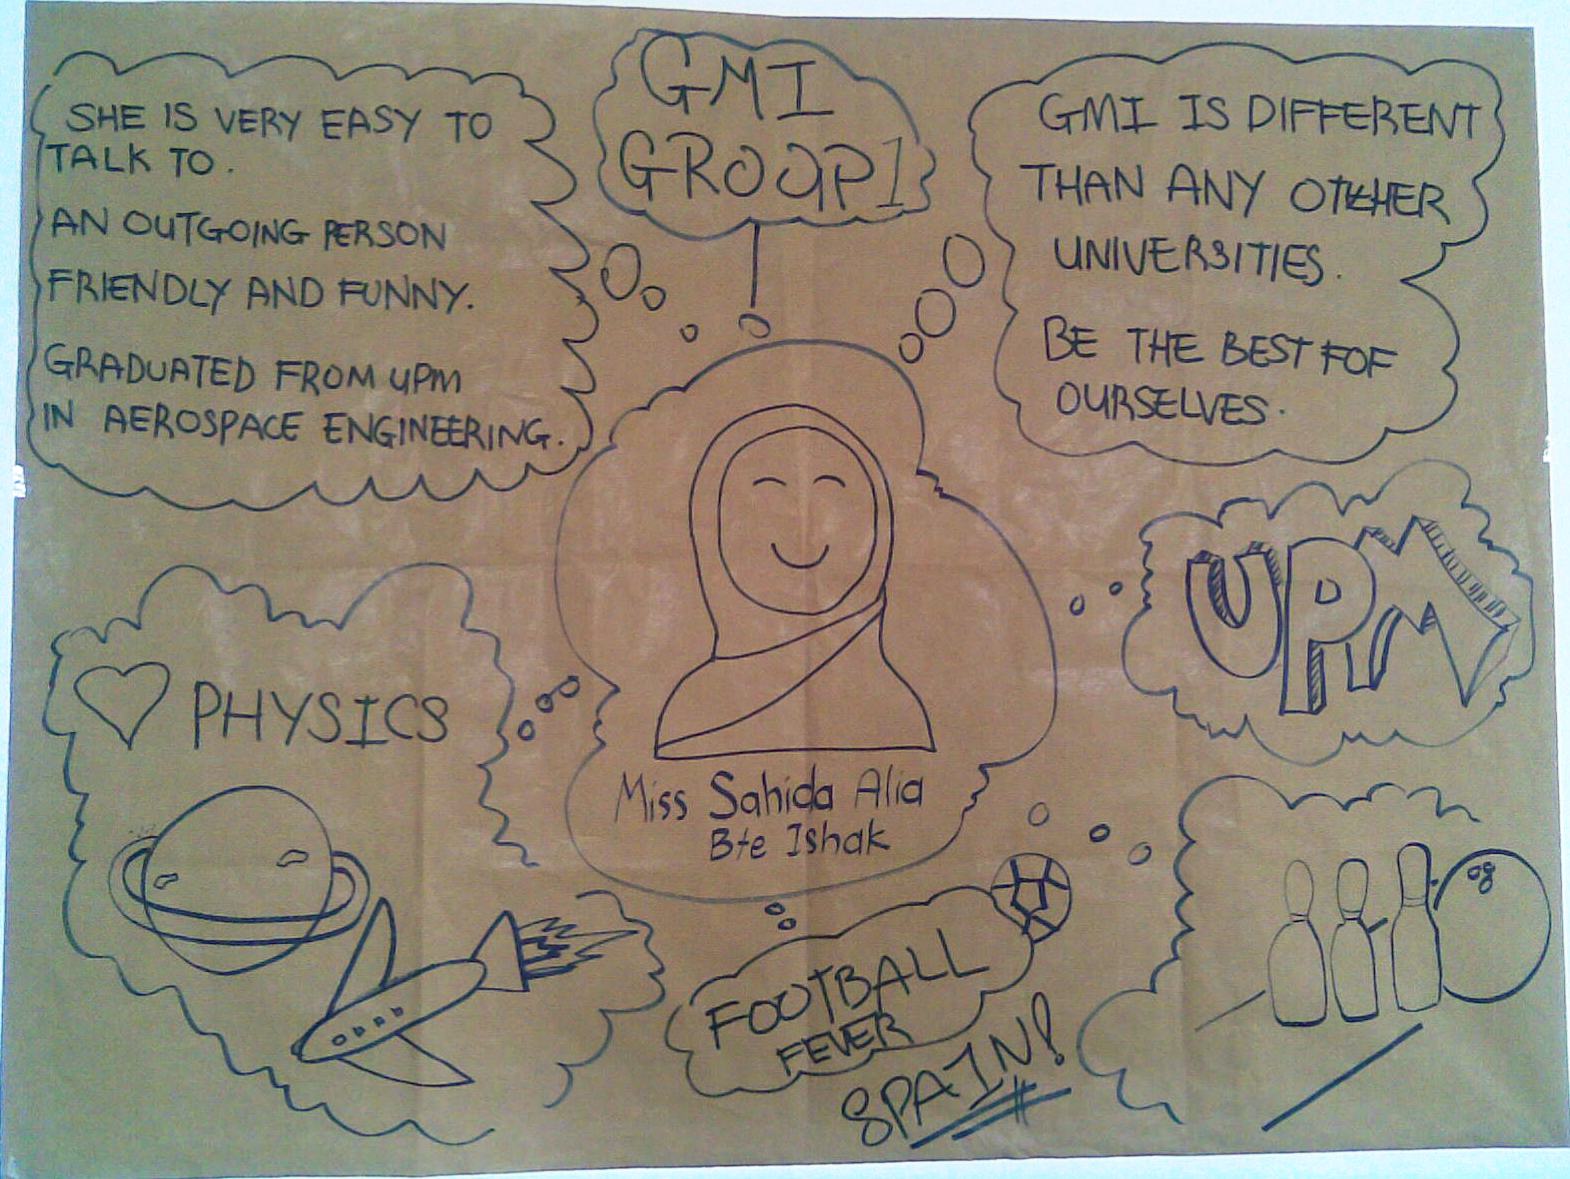 GMI
GROUP 1
SHE IS VERY EASY TO
TALK TO.
AN OUTGOING PERSON
FRIENDLY AND FUNNY.
GRADUATED FROM UPM
IN AEROSPACE ENGINEERING.
GMI IS DIFFERENT
THAN ANY OTHER
UNIVERSITIES.
BE THE BEST FOF
OURSELVES.
UPM
PHYSICS
Miss Sahida Alia
Bte Ishak
FOOTBALL
FEVER
SPAIN!